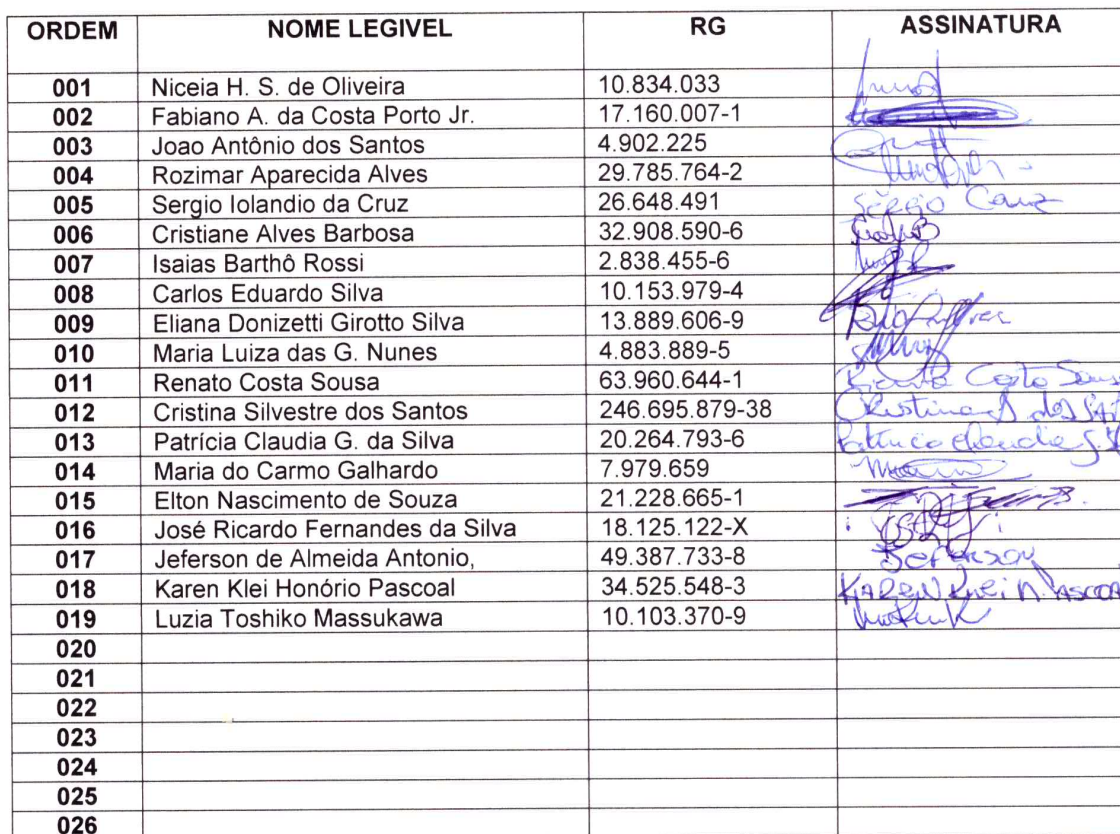 ORDEM NOME LEGIVEL RG ASSINATURA
001 Niceia H. S. de Oliveira 10.834.033
002 Fabiano A. da Costa Porto Jr. 17.160.007-1
003 Joao Antônio dos Santos 4.902.225
004 Rozimar Aparecida Alves 29.785.764-2
005 Sergio Iolandio da Cruz 26.648.491 Sérgio Cruz
006 Cristiane Alves Barbosa 32.908.590-6
007 Isaias Barthô Rossi 2.838.455-6
008 Carlos Eduardo Silva 10.153.979-4
009 Eliana Donizetti Girotto Silva 13.889.606-9
010 Maria Luiza das G. Nunes 4.883.889-5
011 Renato Costa Sousa 63.960.644-1 Costa
012 Cristina Silvestre dos Santos 246.695.879-38 Cristina S dos
013 Patrícia Claudia G. da Silva 20.264.793-6 Patricia Claudia
014 Maria do Carmo Galhardo 7.979.659
015 Elton Nascimento de Souza 21.228.665-1
016 José Ricardo Fernandes da Silva 18.125.122-X
017 Jeferson de Almeida Antonio, 49.387.733-8 Jeferson
018 Karen Klei Honório Pascoal 34.525.548-3 KAREN Klei
019 Luzia Toshiko Massukawa 10.103.370-9
020
021
022
023
024
025
026